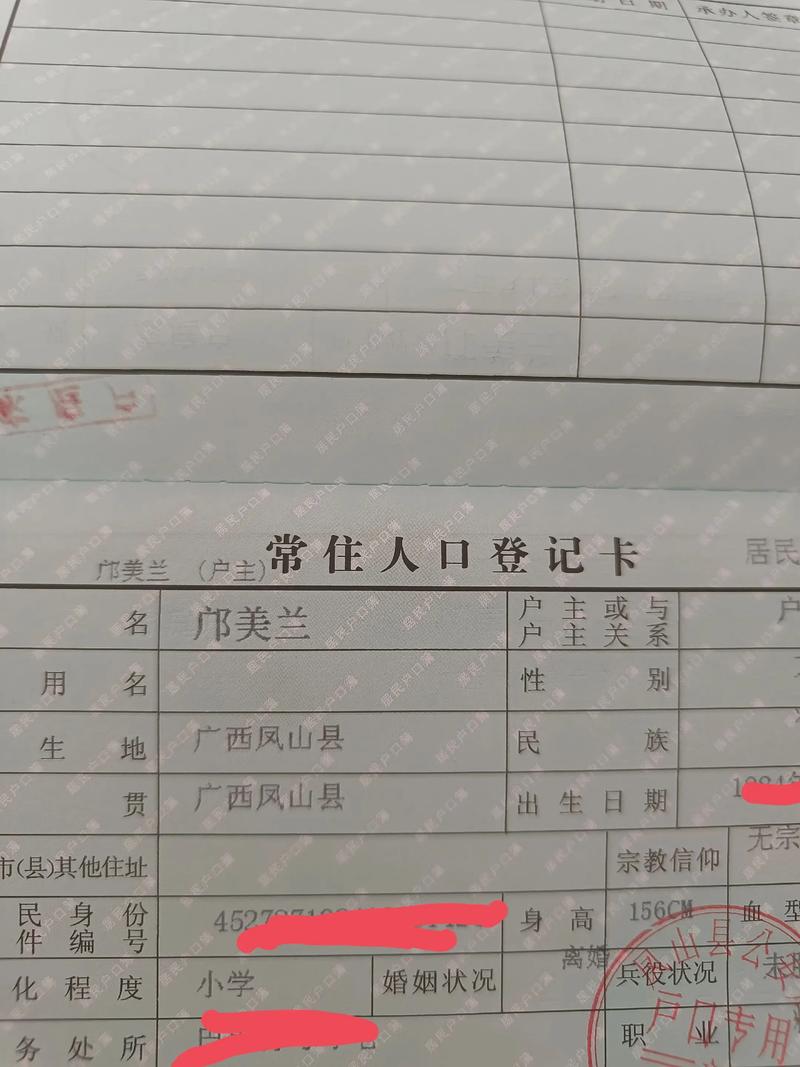 日期 承办人签章
居民户口簿
常住人口登记卡
邝美兰 (户主) 居民
名 邝美兰 户主或与户主关系 户
用名 性别
生地 广西凤山县 民族
贯 广西凤山县 出生日期
市(县)其他住址 宗教信仰 无宗
民身份
件编号 身高 156CM 血型
化程度 小学 婚姻状况 离婚 兵役状况 未
务处所 职业
山县公
户口专用